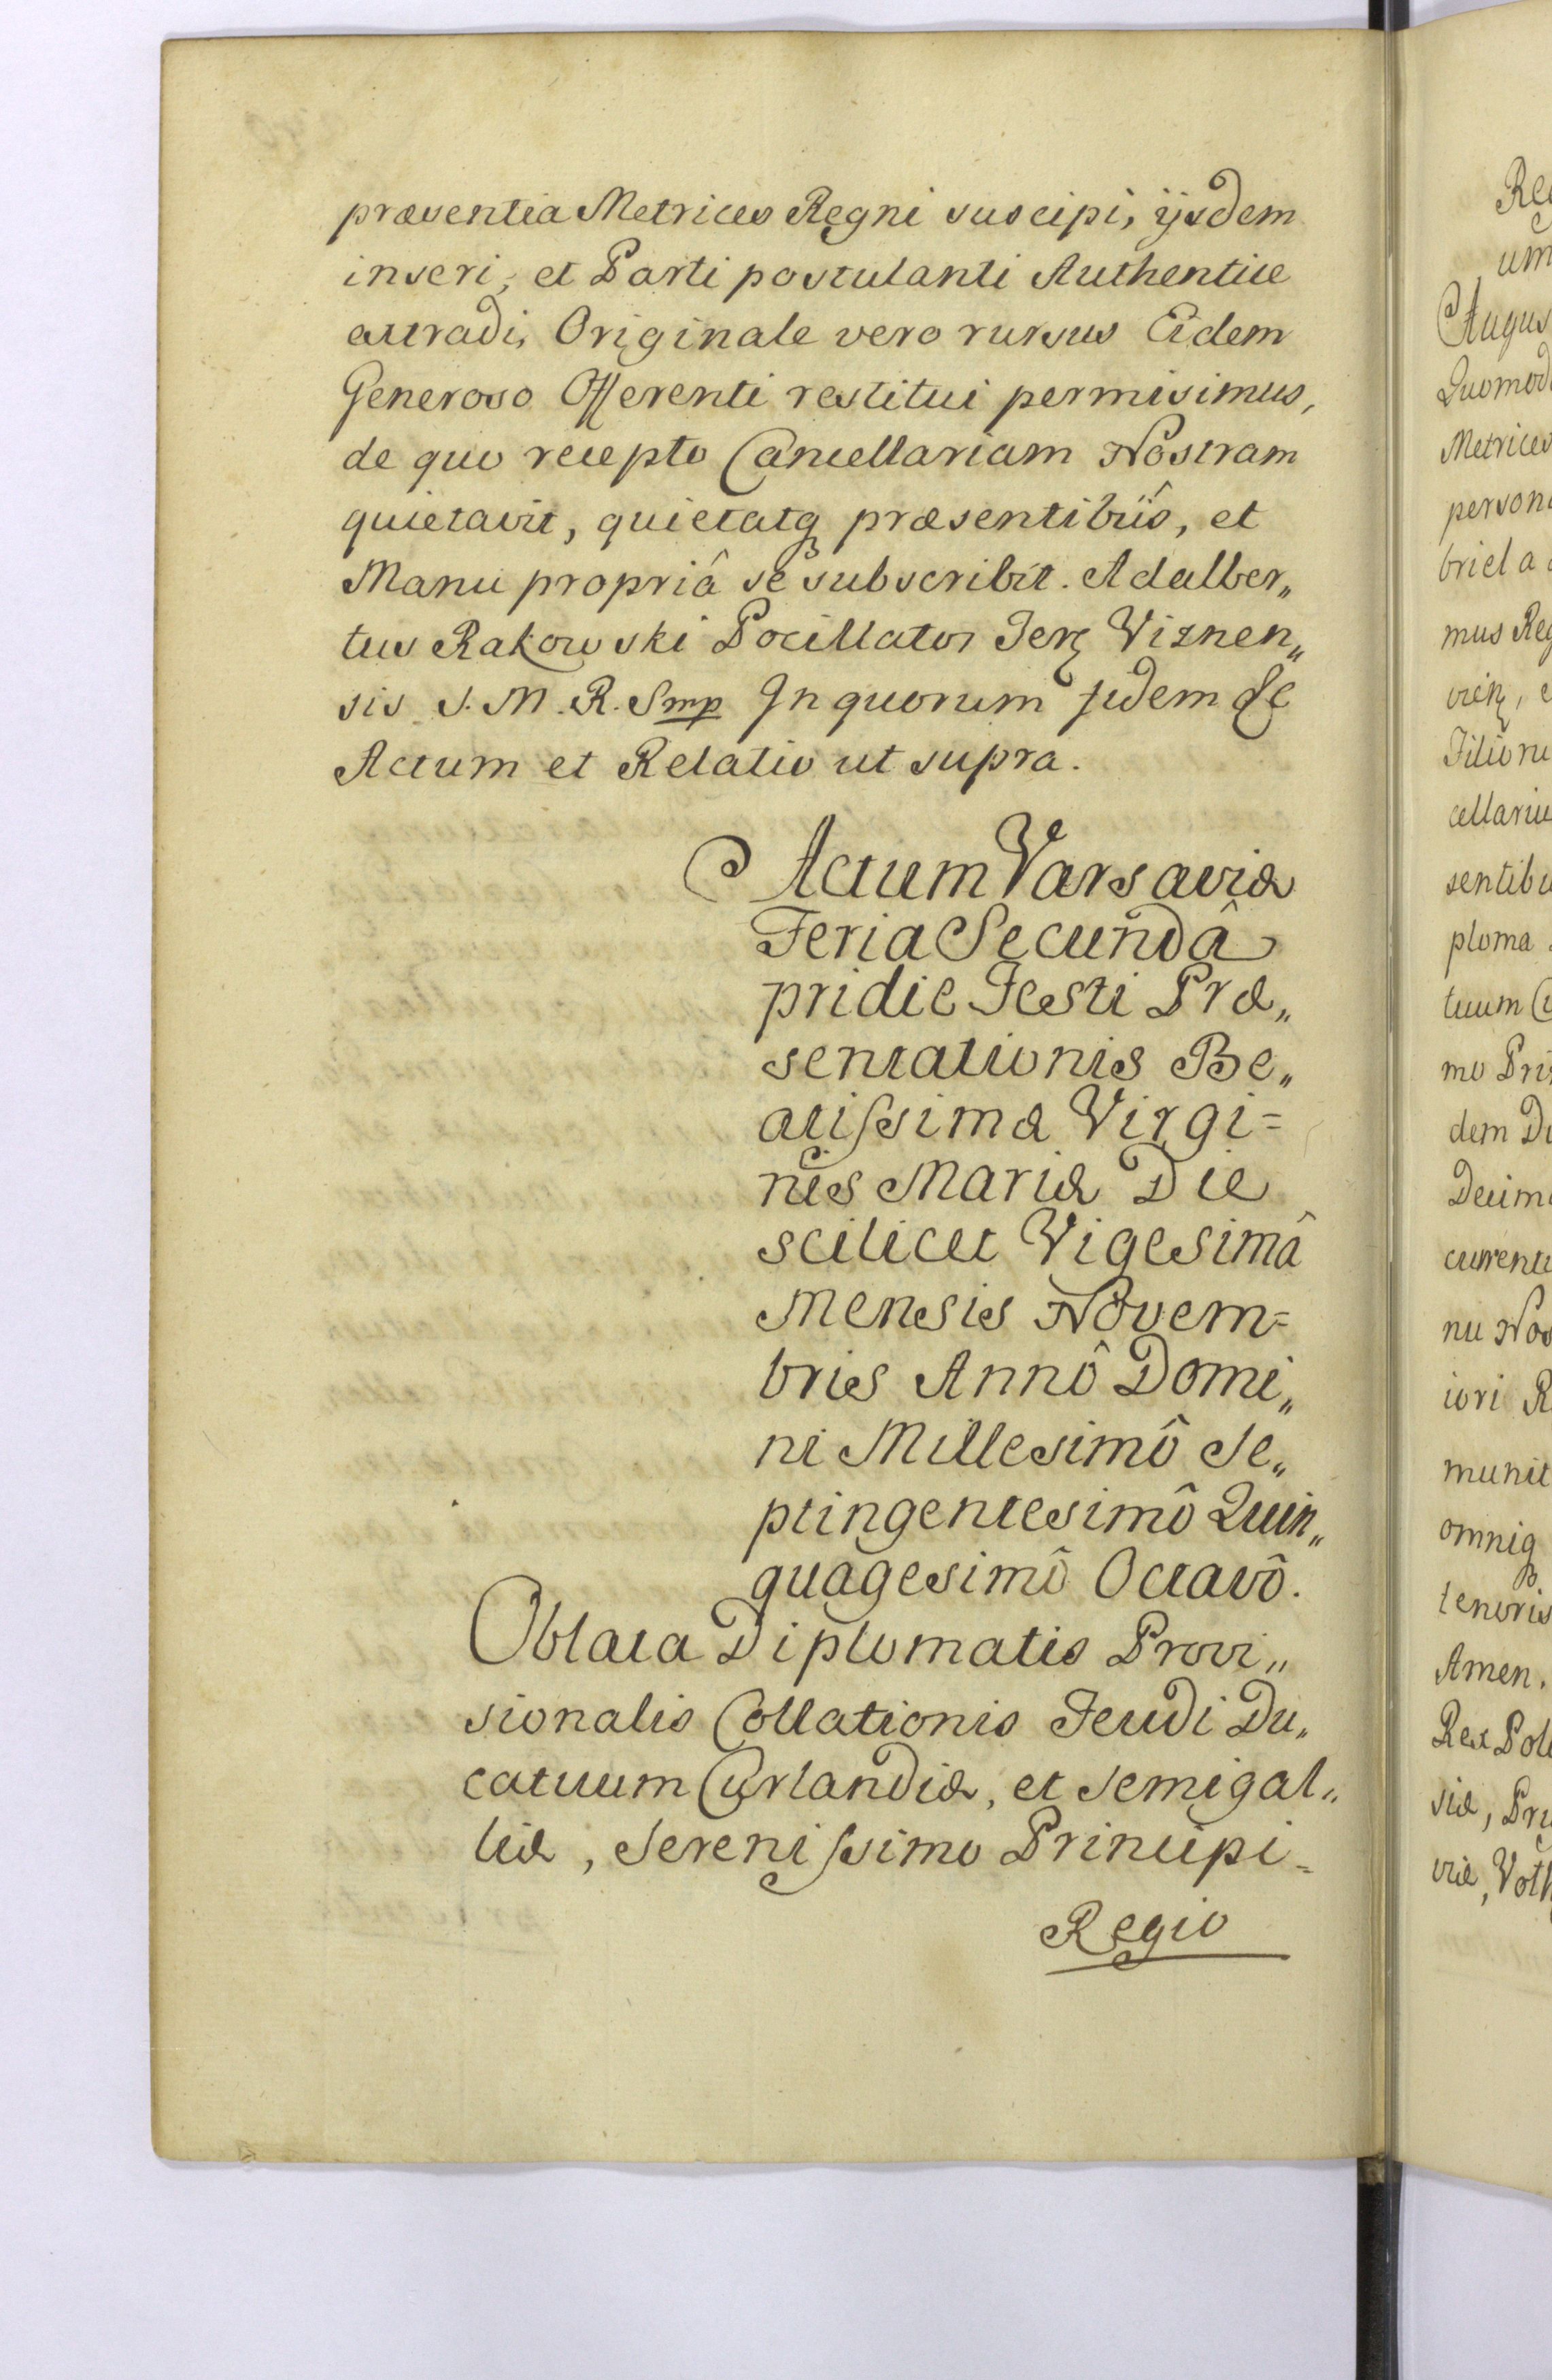 præsentia Metrices Regni suscipi, ijsdem
inseri, et Parti postulanti Authentice
extradi, Originale vero rursus Eidem
Generoso Offerenti restitui permisimus,
de quo recepto Cancellariam Nostram
quietavit, quietatq præsentibus, et
Manu propriâ se subscribit. Adalber„
tus Rakowski Pocillator Terr Viznen„
sis S. M. R. Smp In quorum fidem &c
Actum et Relatio ut supra.
Actum Varsaviæ
Feria Secundâ
pridie Festi Præ„
sentationis Be„
atissimæ Virgi=
nis Mariæ Die
scilicet Vigesimâ
Mensis Novem=
bris Annô Domi„
ni Millesimô Se„
ptingentesimô Quin„
quagesimô Octavô.
Oblata Diplomatis Provi„
sionalis Collationis Feudi Du„
catuum Curlandiæ, et Semigal„
liæ, Serenissimo Principi=
Regio
um
Augus
Quomod
Metrices
person
briel a
mus Reg
Filioru
cellariu
sentibu
ploma
tuum Cu
mo Prin
dem Du
Decim
currenti
nu Nos
iori R
munit
omniq
tenoris
Amen.
Rex Polo
siæ, Pru
viæ, Volh